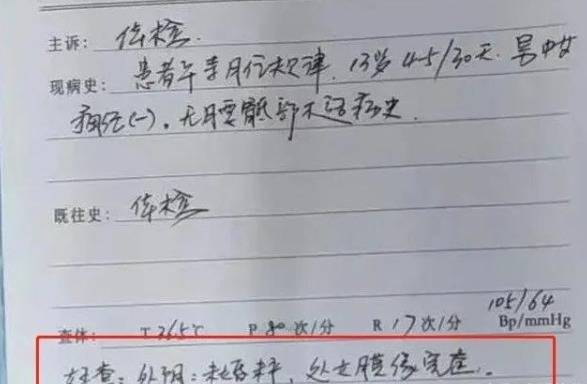 主诉：体检.
现病史：患者平素月经规律. 13岁 4-5/30天. 量中等
痛经(-). 无腰骶部不适病史.
既往史：体检
查体：T 36.5℃ P 80次/分 R 17次/分 105/64 Bp/mmHg
妇查：外阴：未婚样，处女膜缘完整.